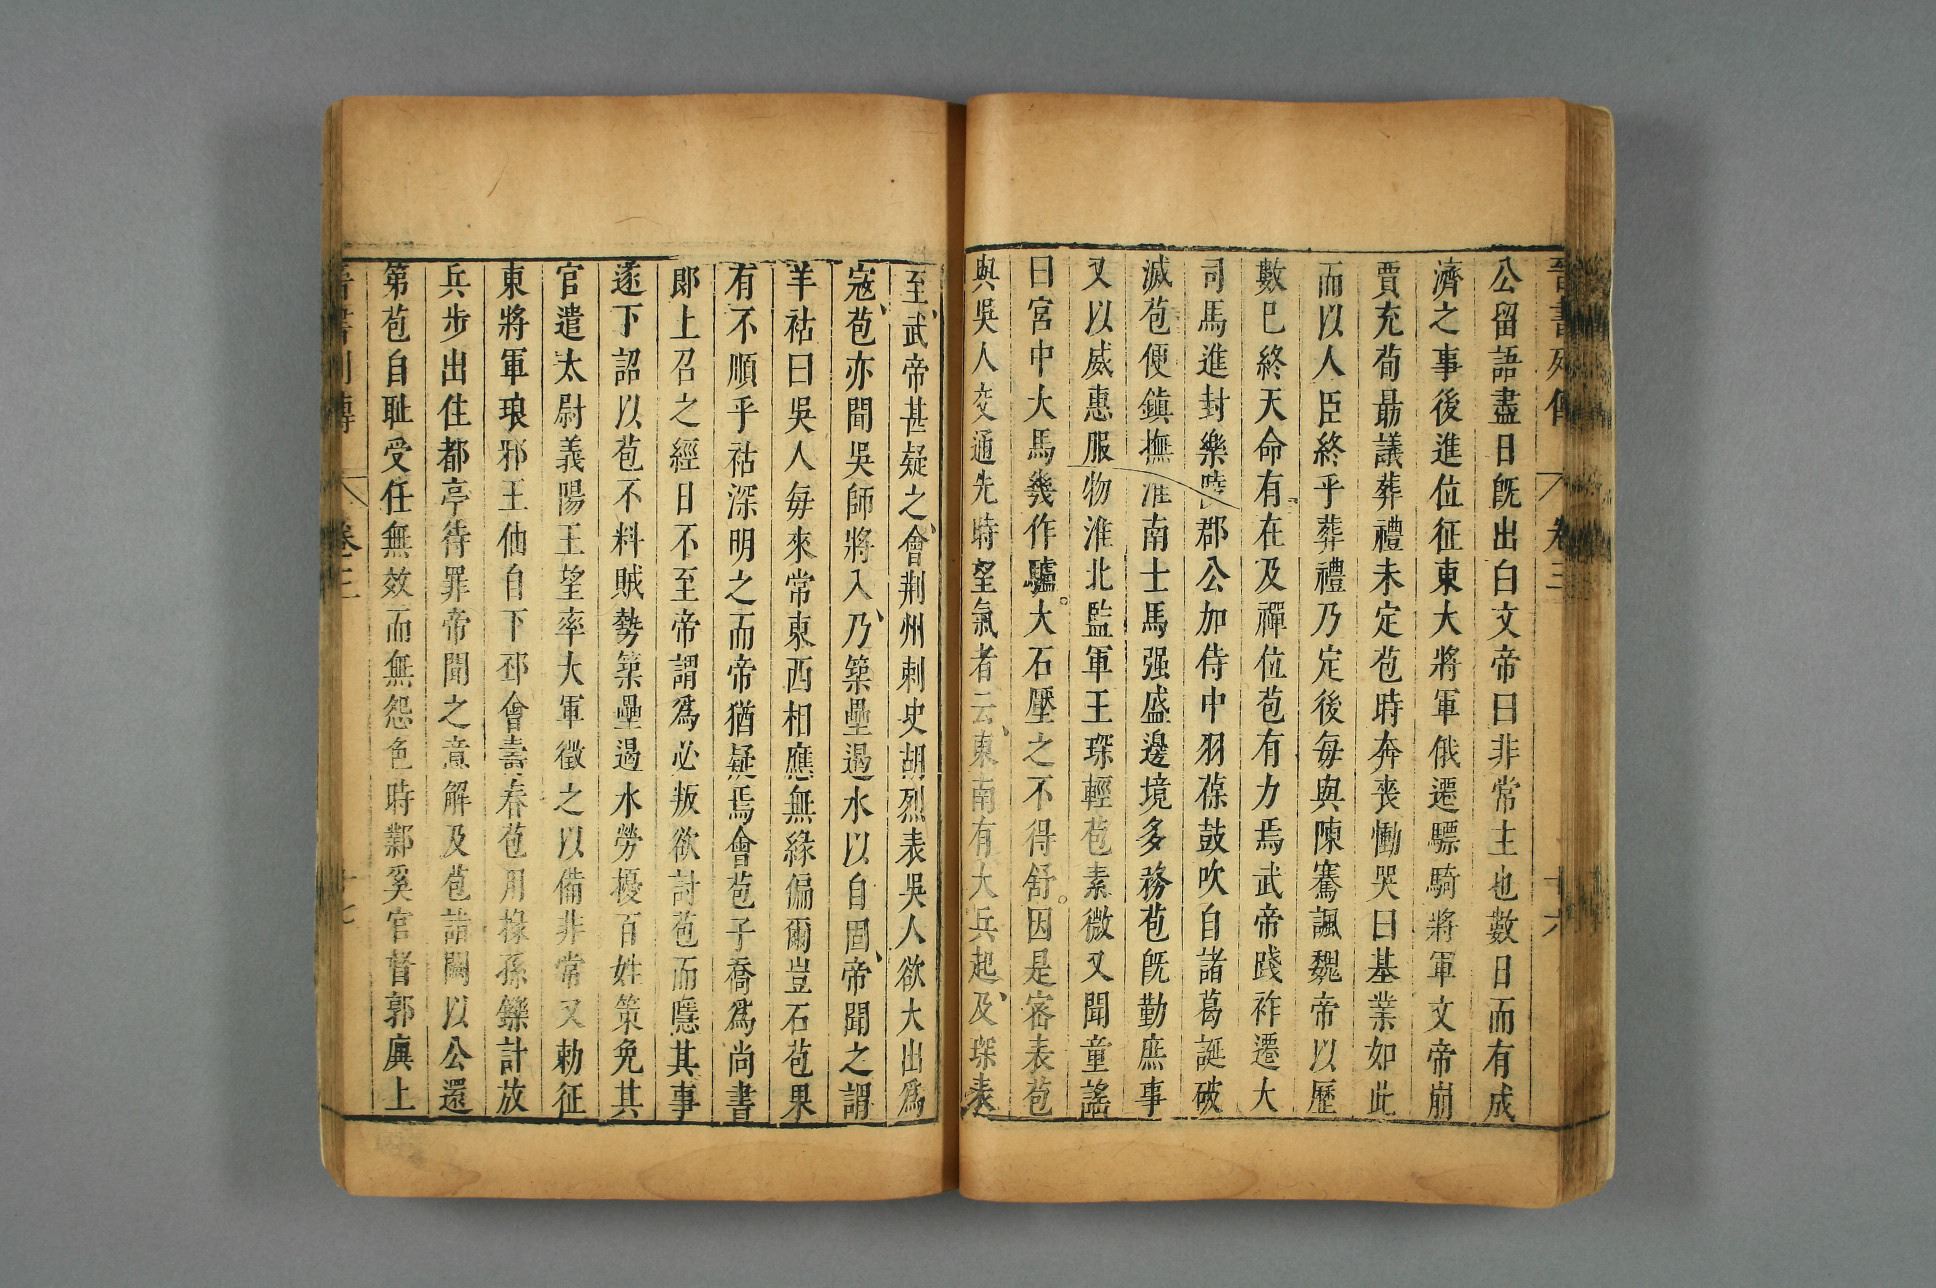 晉書列傳 卷三 十六
公留語盡日旣出白文帝曰非常主也數日而有成
濟之事後進位征東大將軍俄遷驃騎將軍文帝崩
賈充荀勗議葬禮未定苞時奔喪慟哭曰基業如此
而以人臣終乎葬禮乃定後每與陳騫諷魏帝以歷
數巳終天命有在及禪位苞有力焉武帝踐祚遷大
司馬進封樂陵郡公加侍中羽葆鼓吹自諸葛誕破
滅苞便鎮撫淮南士馬强盛邊境多務苞旣勤庶事
又以威惠服物淮北監軍王琛輕苞素微又聞童謠
曰宮中大馬幾作驢大石壓之不得舒因是密表苞
與吳人交通先時望氣者云東南有大兵起及琛表
至武帝甚疑之會荆州刺史胡烈表吳人欲大出爲
寇苞亦聞吳師將入乃築壘遏水以自固帝聞之謂
羊祜曰吳人每來常東西相應無緣偏爾豈石苞果
有不順乎祜深明之而帝猶疑焉會苞子喬爲尚書
郞上召之經日不至帝謂爲必叛欲討苞而隱其事
遂下詔以苞不料賊勢築壘遏水勞擾百姓策免其
官遣太尉義陽王望率大軍徵之以備非常又勅征
東將軍琅邪王伷自下邳會壽春苞用掾孫鑠計放
兵步出住都亭待罪帝聞之意解及苞詣闕以公還
第苞自耻受任無效而無怨色時鄴奚官督郭廙上
晉書列傳 卷三 十七